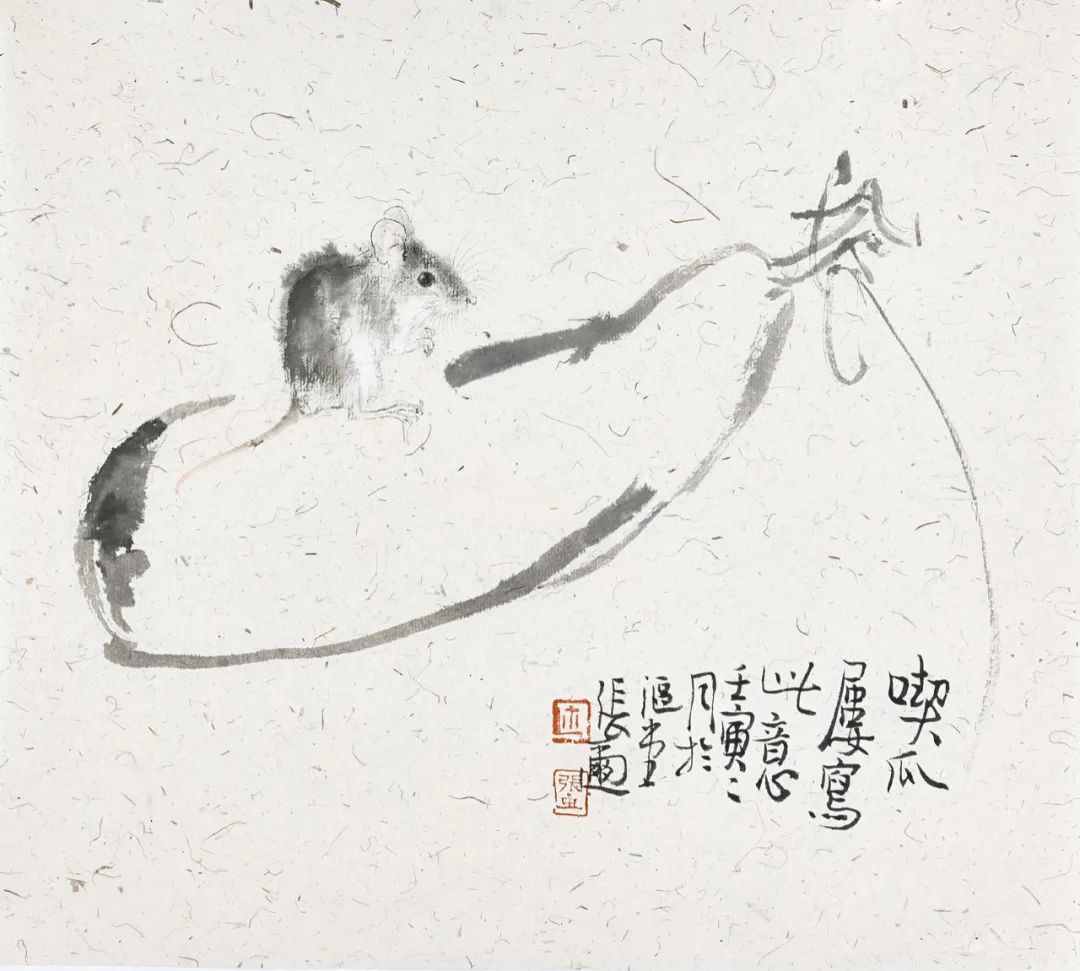 喫瓜
屢寫
此意
壬寅二
月於
漚堂
張